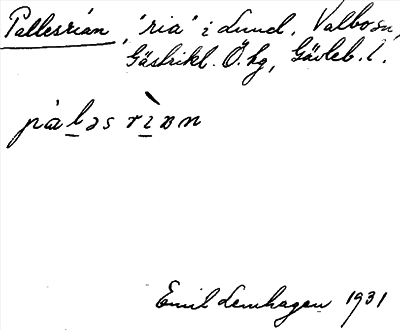 Pallesrian, "ria" i Lund, Valbo sn,
Gästrikl. Ö. hg, Gävleb. l.
pàləs rìan
Emil Lenhagen 1931